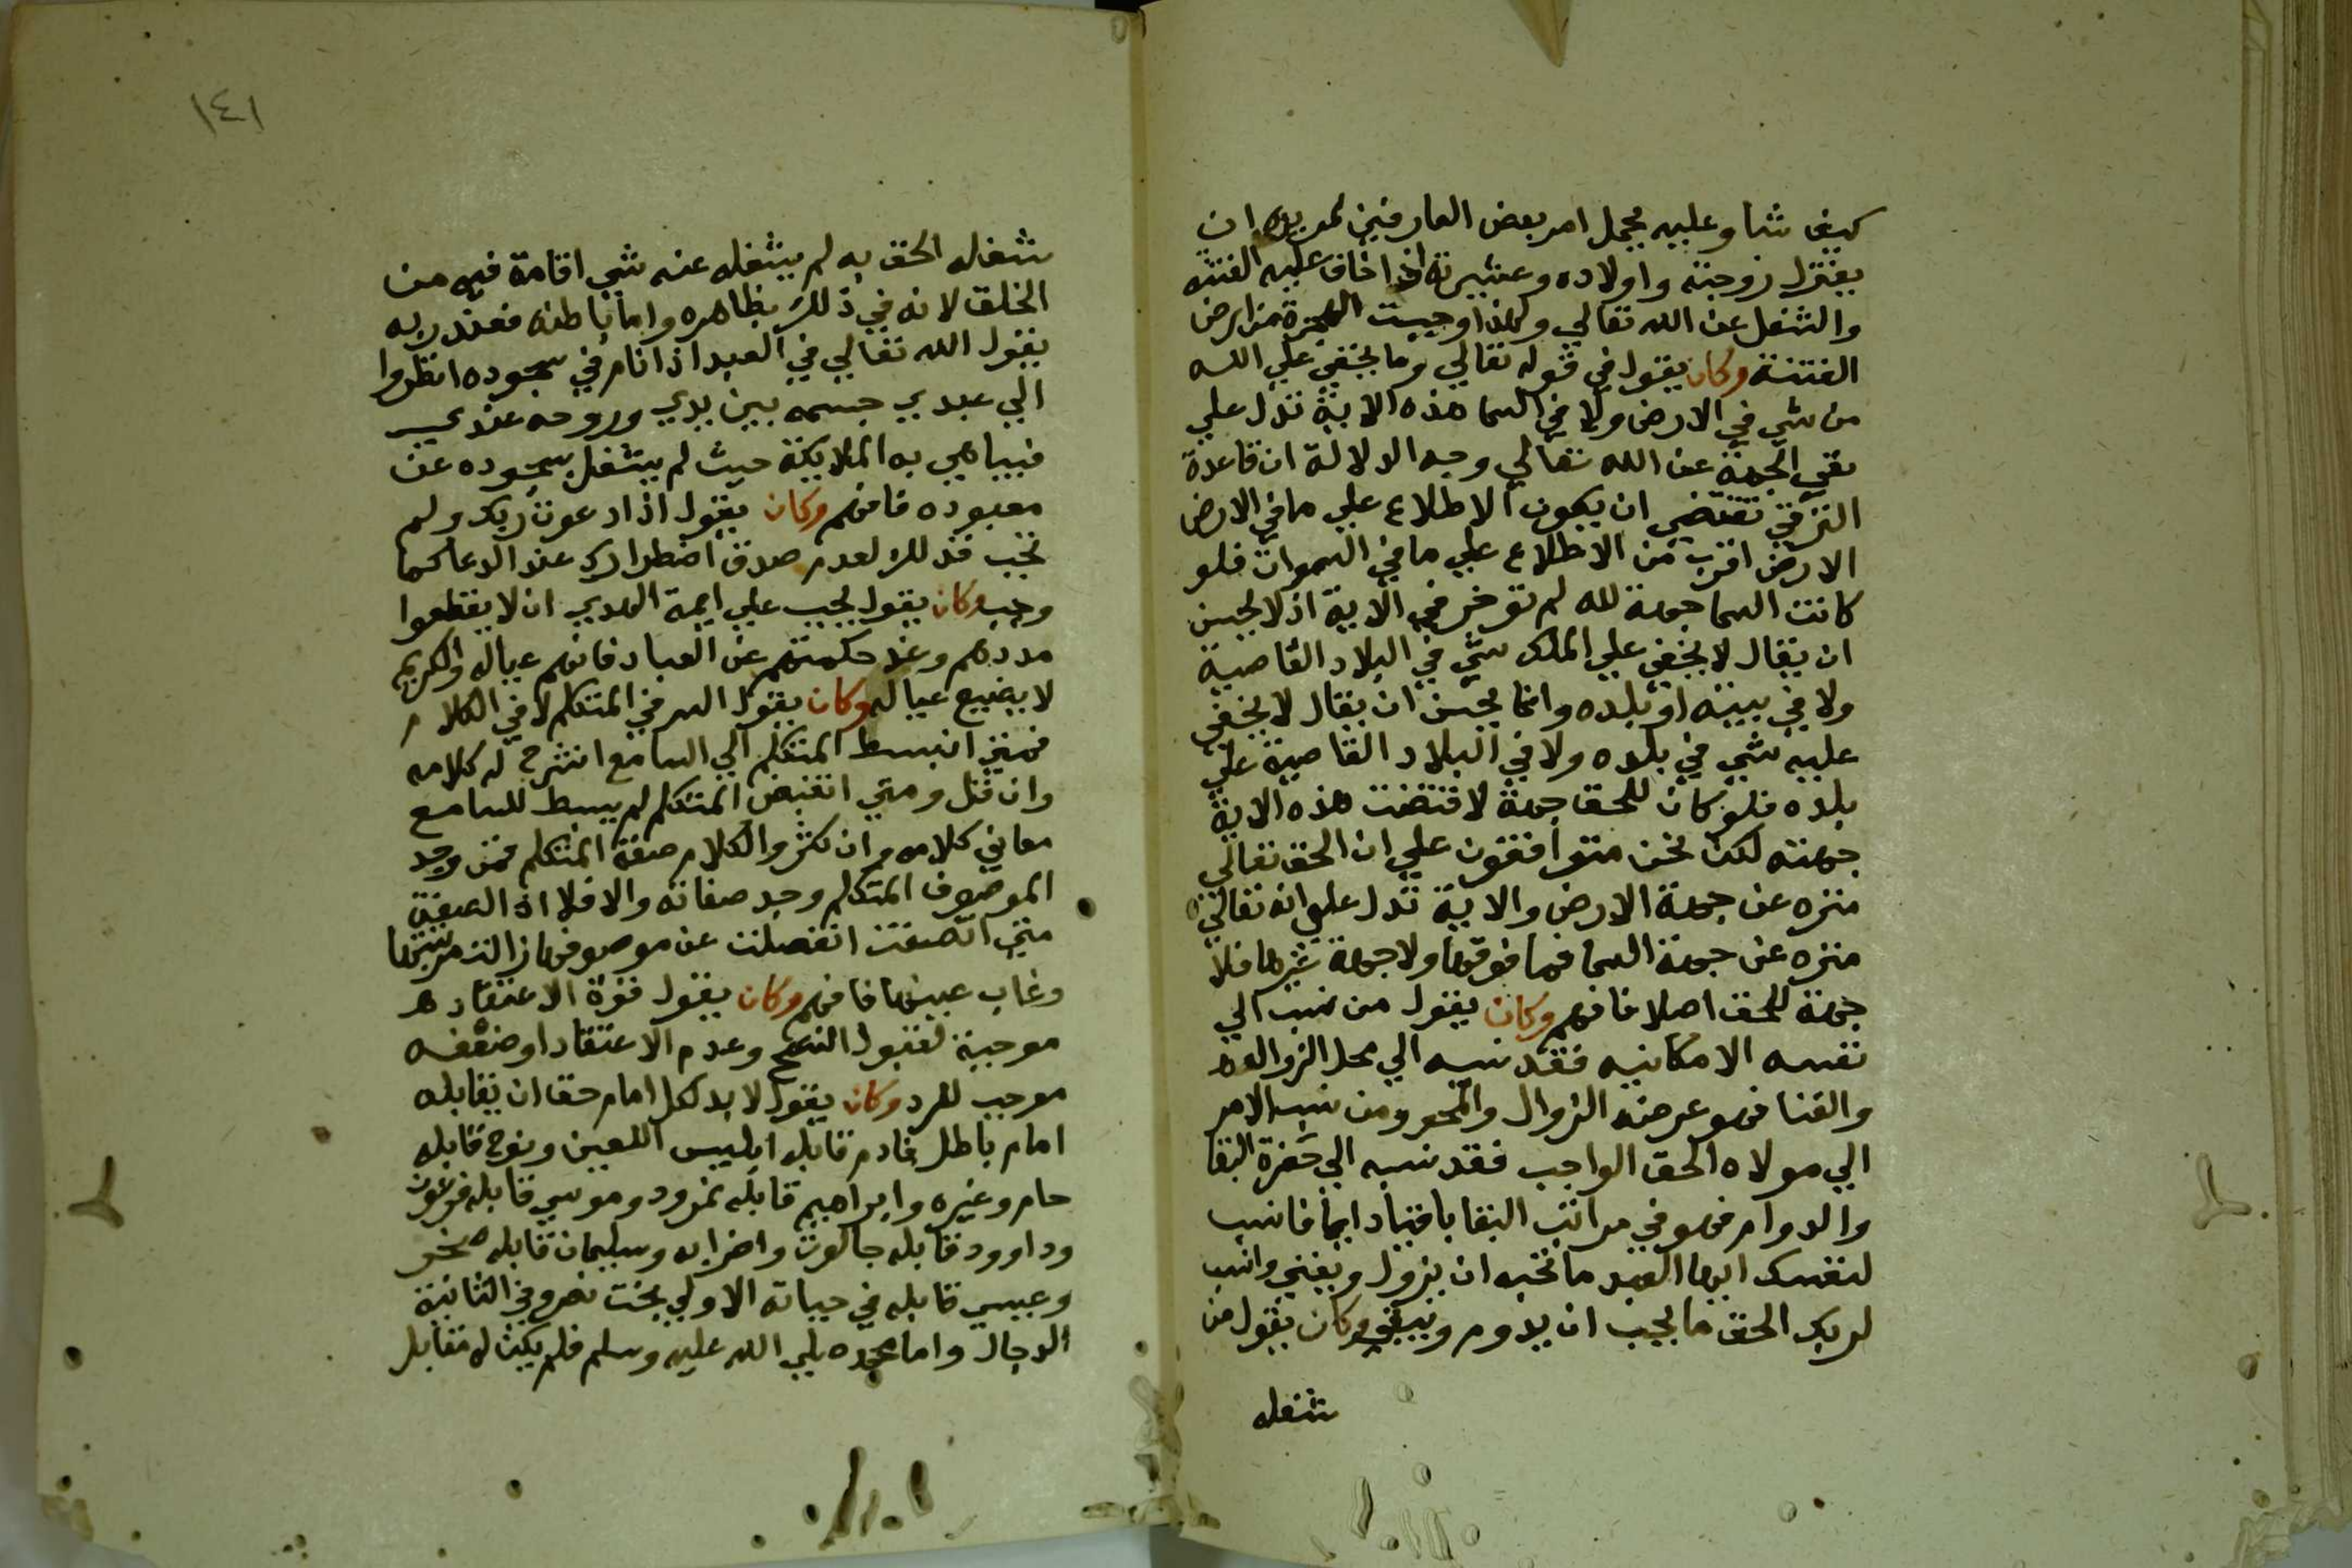 كيف شا وعليه يحمل امر بعض العارفين لمريده ان
يعتزل زوجته واولاده وعشيرته اذا خاف عليه الفتنه
والشغل عن الله تعالي ولهذا وجبت الهجرة من ارض
الفتنة وكان يقول في قوله تعالي وما يخفي علي الله
من شي في الارض ولا في السما هذه الاية تدل علي
نفي الجهة عن الله تعالي وجه الدلالة ان قاعدة
الترقي تقتضي ان يكون الاطلاع علي ما في الارض
الارض اقرب من الاطلاع علي ما في السموات فلو
كانت السما جهة لله لم تؤخر في الاية اذ لا يحسن
ان يقال لا يخفي علي الملك شي في البلاد القاصية
ولا في بيته او بلده وانما يحسن ان يقال لا يخفي
عليه شي في بلده ولا في البلاد القاصية علي
بلده فلو كان للحق جهة لاقتضت هذه الاية
جهته لكن نحن متوافقون علي ان الحق تعالي
منزه عن جهة الارض والاية تدل علي انه تعالي
منزه عن جهة السما فما فوقها ولا جهة غيرها فلا
جهة للحق اصلا فافهم وكان يقول من نسب الي
نفسه الامكانيه فقد نسبه الي محل الزوال
والفنا فهو عرضه الزوال والمحو ومن نسب الامر
الي مولاه الحق الواجب فقد نسبه الي حضرة البقا
والدوام فهو في مراتب البقا باق دايما فانسب
لنفسك ايها العبد ما تحب ان يزول ويفني وانسب
لربك الحق ما يجب ان يدوم ويبقي وكان يقول من
شغله
١٤١
شغله الحق به لم يشغله عنه شي اقامة فيه من
الخلق لانه في ذلك بظاهره واما باطنه فعند ربه
يقول الله تعالي في العبد اذا نام في سجوده انظروا
الي عبدي جسمه بين يدي وروحه عندي
فيباهي به الملايكة حيث لم يشتغل بسجوده عن
معبوده فافهم وكان يقول اذا دعوت ربك ولم
تجب فذلك لعدم صدق اضطرارك عند الدعا كما
وجب وكان يقول يجب علي ايمة الهدي ان لا يقطعوا
مددهم وغذا حكمتهم عن العباد فانهم عياله والكريم
لا يضيع عياله وكان يقول السر في المتكلم لا في الكلام
فمتي انبسط المتكلم الي السامع انشرح له كلامه
وان قل ومتي انقبض المتكلم لم يبسط للسامع
معاني كلامه وان كثر والكلام صفة المتكلم فمن وجد
الموصوف المتكلم وجد صفاته والا فلا اذ الصفة
متي اتصفت انفصلت عن موصوفها زالت مرتبتها
وغاب عينها فافهم وكان يقول قوة الاعتقاد
موجبة لقبول النصح وعدم الاعتقاد او ضعفه
موجب للرد وكان يقول لا بد لكل امام حق ان يقابله
امام باطل فادم قابله ابليس اللعين ونوح قابله
حام وغيره وابراهيم قابله نمرود وموسي قابله فرعون
وداوود قابله جالوت واضرابه وسليمان قابله صخر
وعيسي قابله في حياته الاولي بخت نصر وفي الثانية
الدجال واما محمد صلي الله عليه وسلم فلم يكن له مقابل